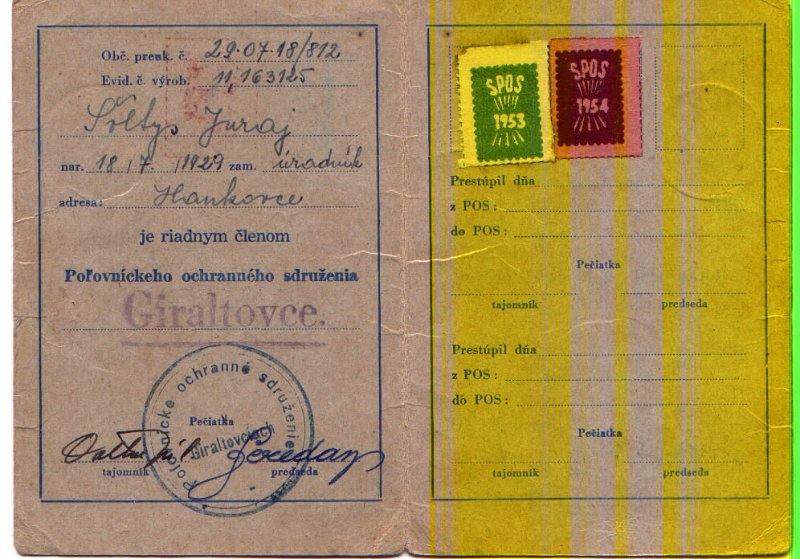 Obč. preuk. č. 29-07-18/812
Evid. č. výrob. 11,163125
Šoltys Juraj
nar. 18/7 1929 zam. úradník
adresa: Hankovce
je riadnym členom
Poľovníckeho ochranného sdruženia
Giraltovce.
Poľovnícke ochranné sdruženie
Giraltovciach
Pečiatka
tajomník predseda
SPOS
1953
SPOS
1954
Prestúpil dňa
z POS:
do POS:
Pečiatka
tajomník predseda
Prestúpil dňa
z POS:
do POS:
Pečiatka
tajomník predseda